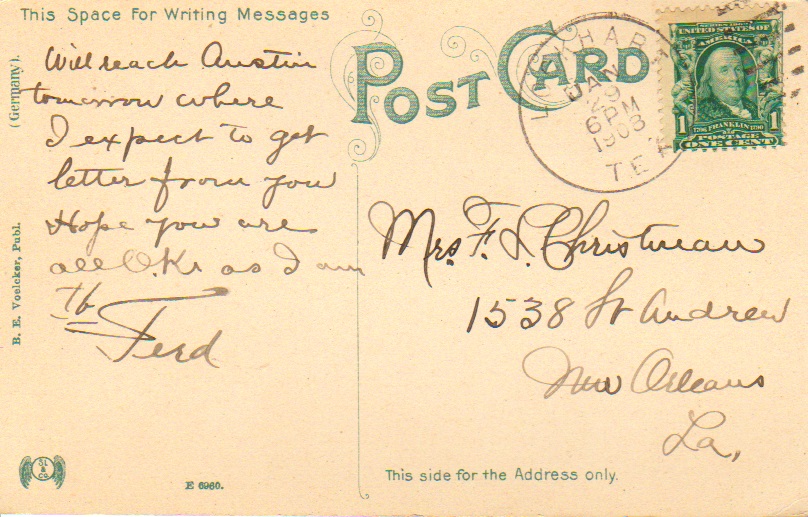 This Space For Writing Messages
Will reach Austin
tomorrow where
I expect to get
letter from you
Hope you are
all O.K. as I am
Ferd
(Germany).
B. E. Voelcker, Publ.
SL & CO
E 6960.
POST CARD
LOCKHART
JAN
29
6 PM
1908
TEX
SERIES 1902
UNITED STATES OF
AMERICA
1706 FRANKLIN 1790
1 POSTAGE 1
ONE CENT
Mrs. F. L. Christman
1538 St Andrew
New Orleans
La,
This side for the Address only.